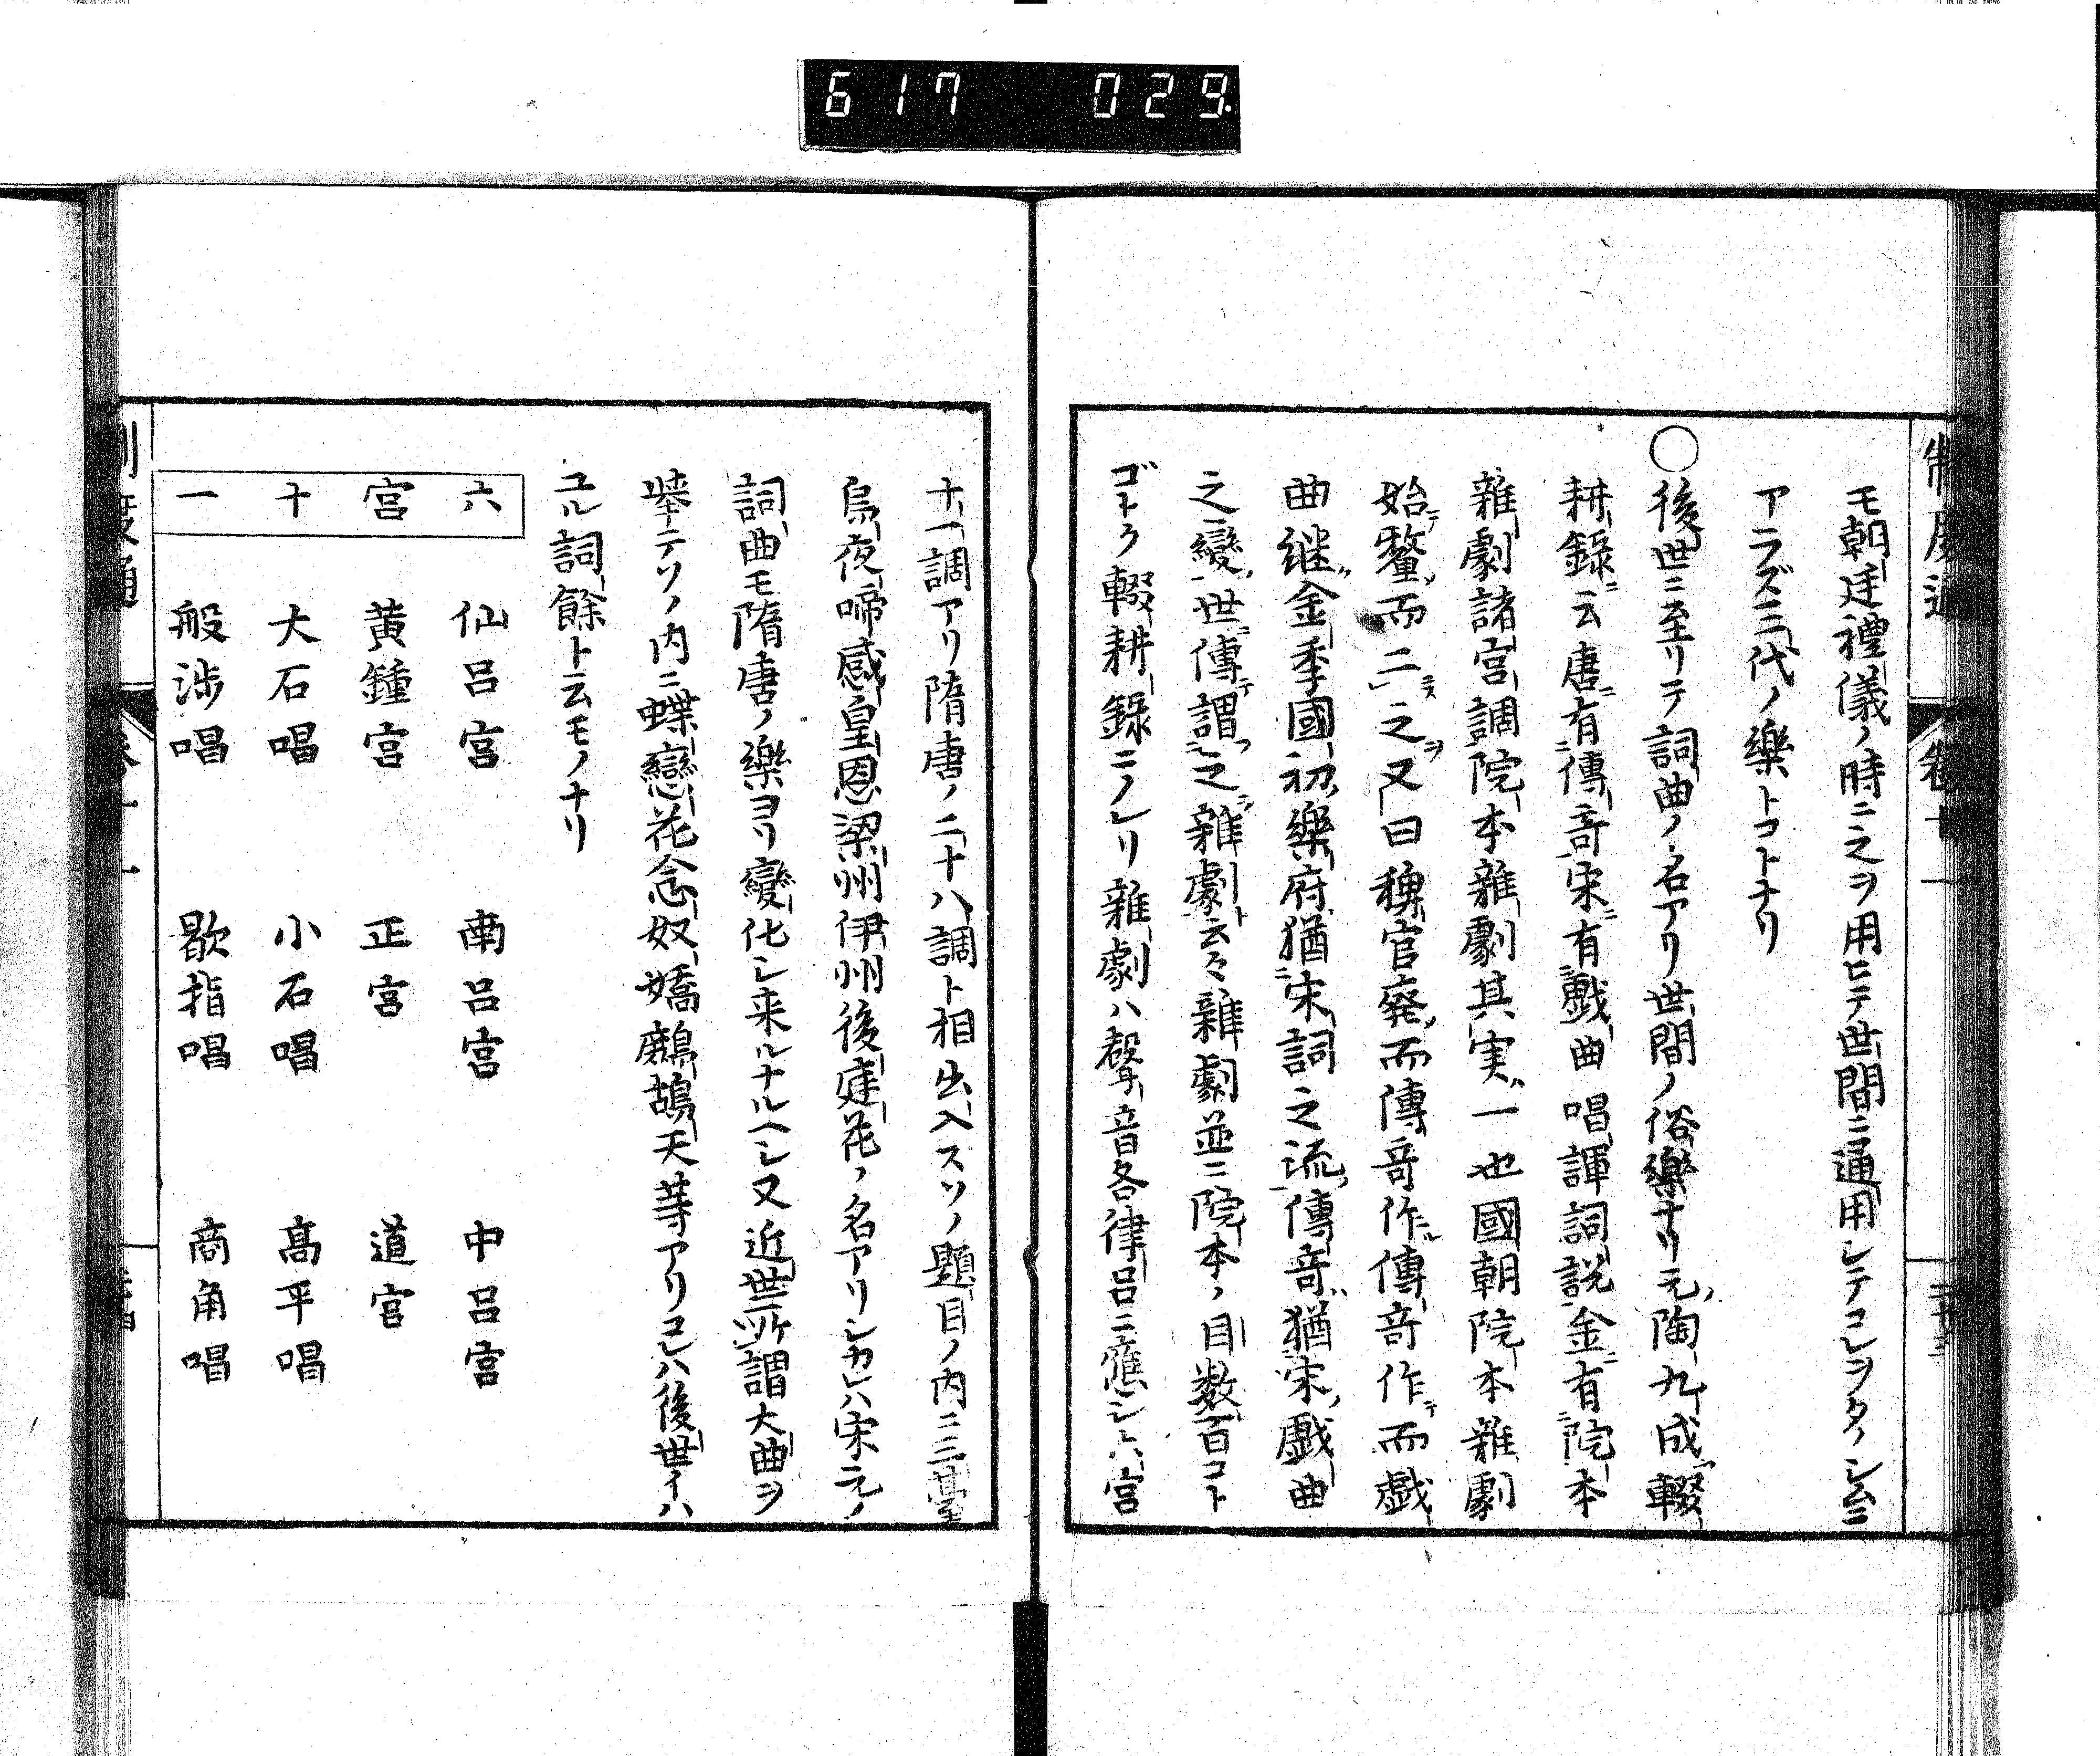 617 029
制度通 卷十一 二十三
モ朝廷禮儀ノ時ニ之ヲ用ヒテ世間ニ通用シテコレヲタノシムニ
アラズ三代ノ樂トコトナリ
○後世ニ至リテ詞曲ノ名アリ世間ノ俗樂ナリ元ノ陶九成輟
耕錄ニ云唐ニ有傳竒宋ニ有戯曲唱諢詞説金ニ有院本
雜劇諸宮調院本雜劇其実一也國朝院本雜劇
始テ釐而二ニス之ヲ又曰稗官廃而傳竒作ル傳竒作テ而戯
曲継金季國初樂府猶宋詞之流傳竒猶宋戯曲
之變世傳テ謂之雜劇ト云々雜劇並ニ院本ノ目数百コト
ゴトク輟耕錄ニノレリ雜劇ハ聲音各律呂ニ應シ六宮
十一調アリ隋唐ノ二十八調ト相出入スソノ題目ノ内ニ三臺
烏夜啼感皇恩梁州伊州後庭花ノ名アリシカレハ宋元ノ
詞曲モ隋唐ノ樂ヨリ變化シ来ルナルヘシ又近世所謂大曲ヲ
挙テソノ内ニ蝶戀花念奴嬌鷓鴣天等アリコレハ後世イハ
ユル詞餘ト云モノナリ
六 仙呂宮 南呂宮 中呂宮
宮 黄鍾宮 正宮 道宮
十 大石唱 小石唱 髙平唱
一 般渉唱 歇指唱 商角唱
制度通 卷十一